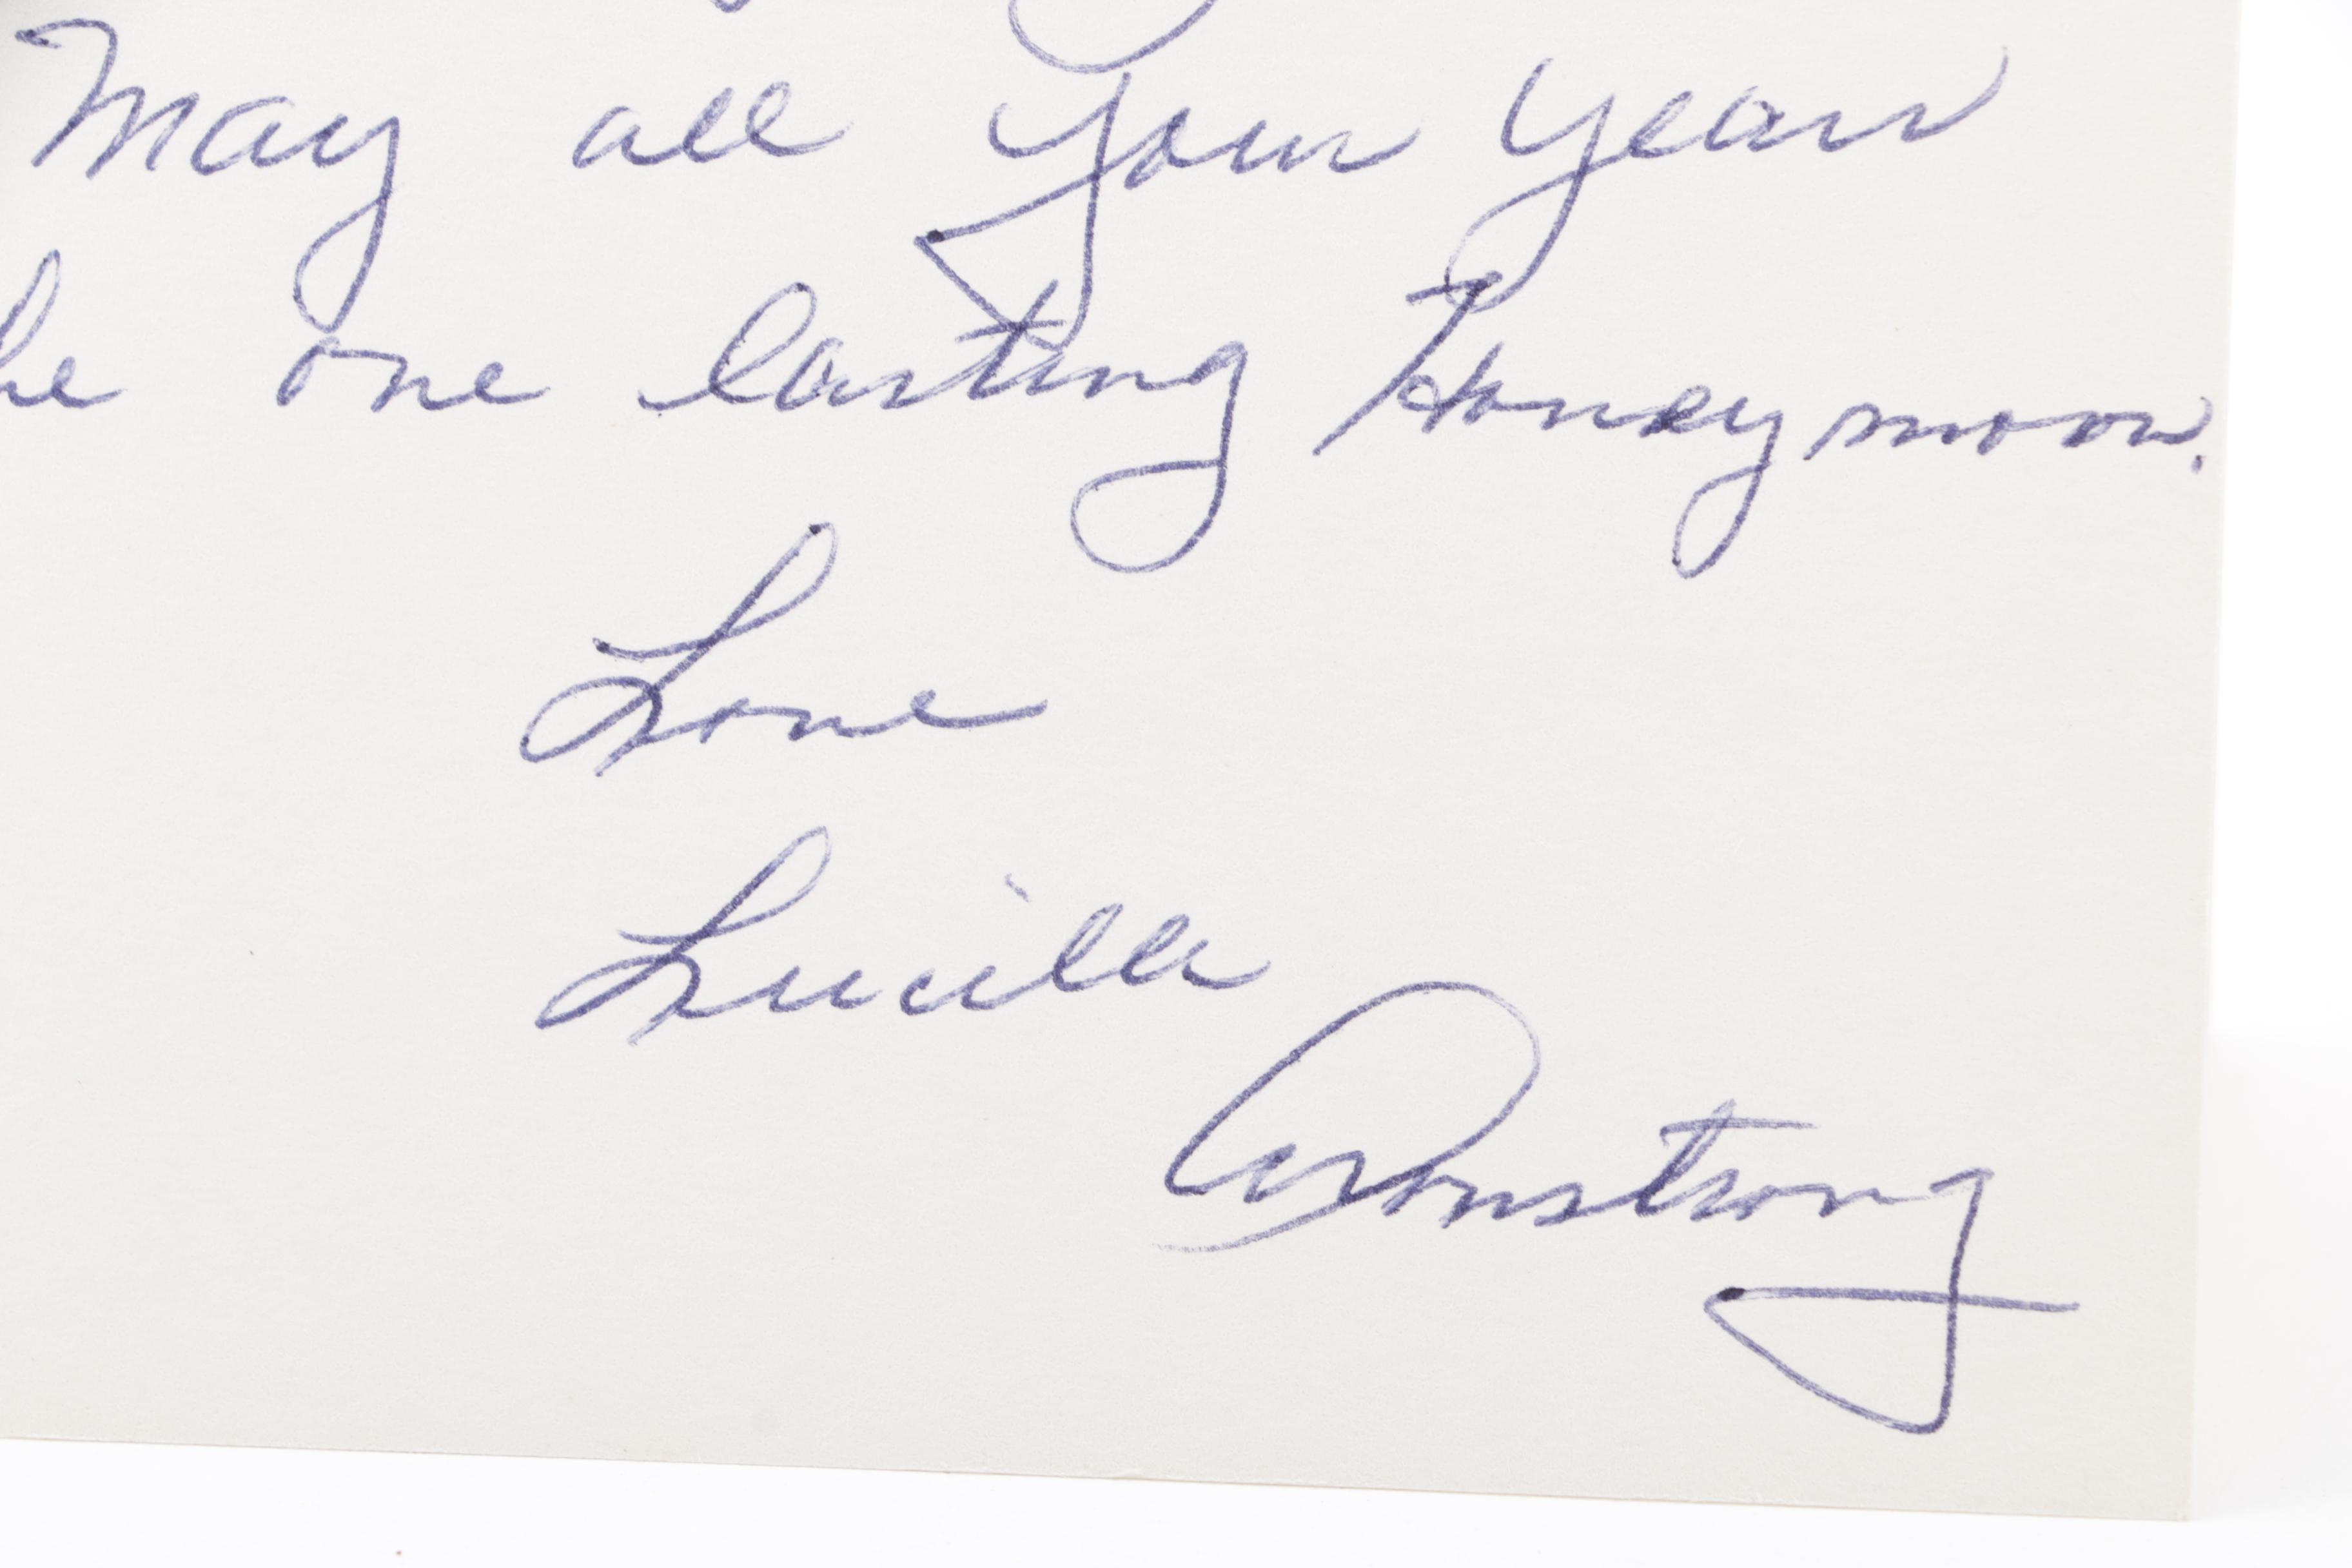 May all your years
be one lasting Honeymoon.
Love
Lucille
Armstrong